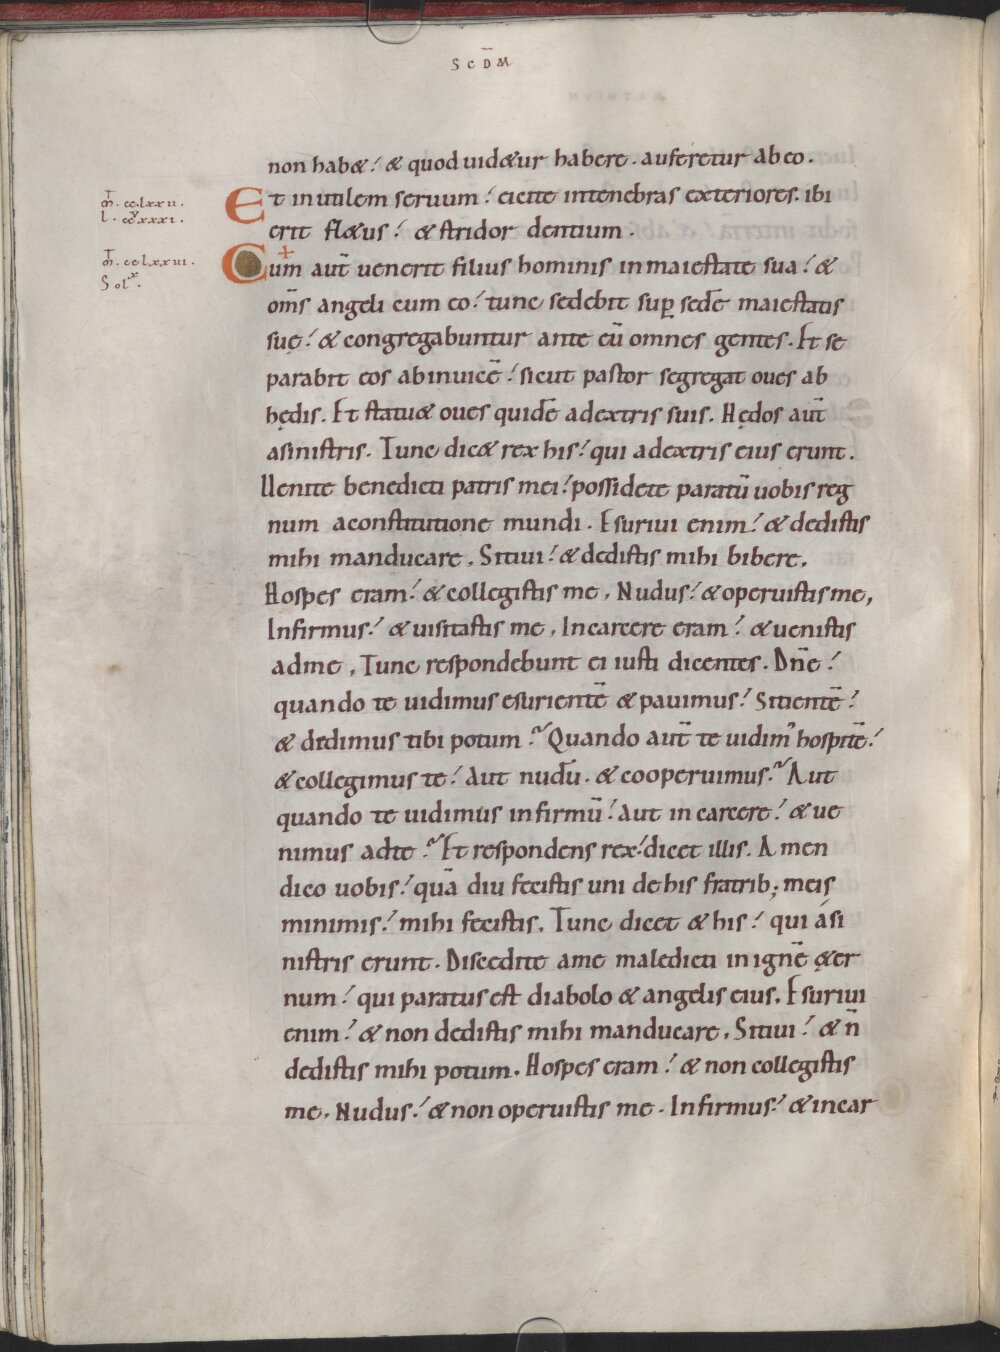 SCD̄M
non habet! & quod uidetur habere. auferetur ab eo.
m̄. cc.lxxii.
l. ccxxxi.
Et inutilem seruum! eicite intenebras exteriores. ibi
erit fletus! & stridor dentium.
m̄. cclxxui.
Sol
Cum aut̄ uenerit filius hominis inmaiestate sua! &
om̄s angeli cum eo! tunc sedebit sup̱ sedē maiestatis
suę! & congregabuntur ante eū omnes gentes. Et se
parabit eos abinuicē! sicut pastor segregat oues ab
hędis. Et statuet oues quidē adextris suis. Hędos aut̄
asinistris. Tunc dicet rex his! qui adextris eius erunt.
Uenite benedicti patris mei! possidete paratū uobis reg
num aconstitutione mundi. Esuriui enim! & dedistis
mihi manducare. Sitiui! & dedistis mihi bibere.
Hospes eram! & collegistis me. Nudus! & operuistis me,
Infirmus! & uisitastis me. Incarcere eram! & uenistis
adme. Tunc respondebunt ei iusti dicentes. Dn̄e!
quando te uidimus esurientē & pauimus! Sitientē!
& dedimus tibi potum? Quando aut̄ te uidim' hospitē!
& collegimus te! Aut nudū. & cooperuimus? Aut
quando te uidimus infirmū! Aut in carcere! & ue
nimus adte? Et respondens rex! dicet illis. Amen
dico uobis! quā diu fecistis uni dehis fratrib; meis
minimis! mihi fecistis. Tunc dicet & his! qui ási
nistris erunt. Discedite ame maledicti inignē ęter
num! qui paratus est diabolo & angelis eius. Esuriui
enim! & non dedistis mihi manducare. Sitiui! & n̄
dedistis mihi potum. Hospes eram! & non collegistis
me. Nudus! & non operuistis me. Infirmus! & incar